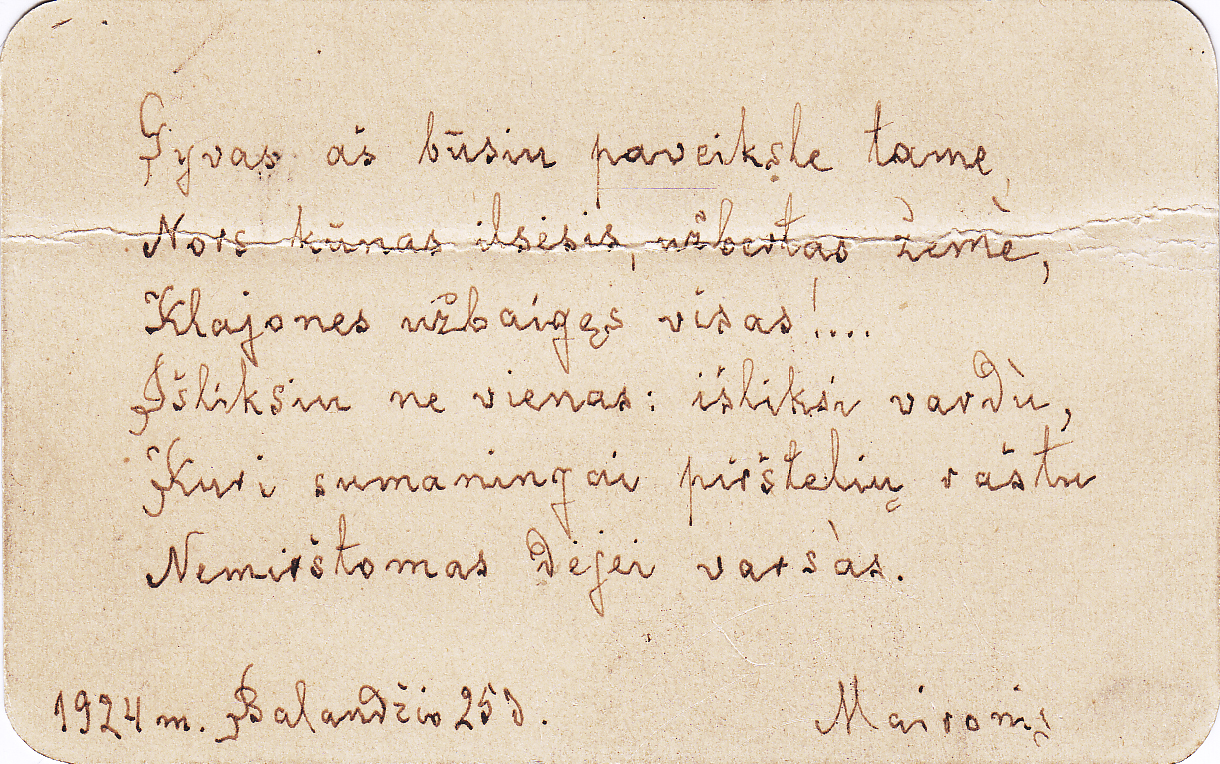 Gyvas aš būsiu paveiksle tame,
Nors kūnas ilsėsis, užbertas žeme,
Klajones užbaigęs visas!....
Išliksiu ne vienas: išliksi vardù,
Kuri sumaningai pirštelių raštu
Nemirštomas dėjei varsàs.
1924 m. Balandžio 25 d.
Maironis